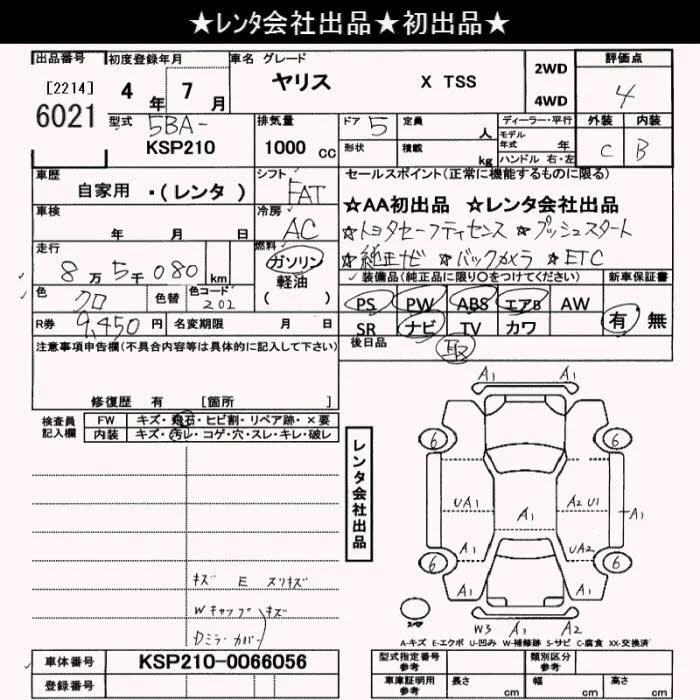 ★レンタ会社出品★初出品★
出品番号 初度登録年月 車名 グレード 評価点
[2214] 6021 4年 7月 ヤリス X TSS 2WD 4WD 4
型式 5BA- KSP210 排気量 1000 cc ドア 5 定員 人 ディーラー・平行 外装 内装
形状 積載 kg モデル年式 年 ハンドル 右・左 C B
車歴 自家用 ・(レンタ ) シフト FAT セールスポイント(正常に機能するものに限る)
車検 年 月 日 冷房 AC ★AA初出品 ★レンタ会社出品
☆トヨタセーフティセンス ☆プッシュスタート
走行 8万5千080 km 燃料 ガソリン 軽油 ( ) ☆純正ナビ ☆バックカメラ ☆ETC
色 クロ 色替 色コード 202 装備品(純正品に限り○をつけてください) 新車保証書
PS PW ABS エアB AW 有 無
R券 9,450円 名変期限 月 日 SR ナビ TV カワ
後日品 取
注意事項申告欄(不具合内容等は具体的に記入して下さい)
修復歴 有 [箇所 ]
検査員記入欄 FW キズ・飛石・ヒビ割・リペア跡・×要
内装 キズ・汚レ・コゲ・穴・スレ・キレ・破レ
レンタ会社出品
A1 A1
6 6
UA1 A1 A2 U1 A1
A1 UA2
6 6
A1 A1
W3 A1 A2
キズ E スリキズ
Wキャップ キズ
Dミラーカバー
A-キズ E-エクボ U-凹み W-補修跡 S-サビ C-腐食 XX-交換済
車体番号 KSP210-0066056 型式指定番号参考 類別区分参考
登録番号 車庫証明用参考 長さ cm 幅 cm 高さ cm